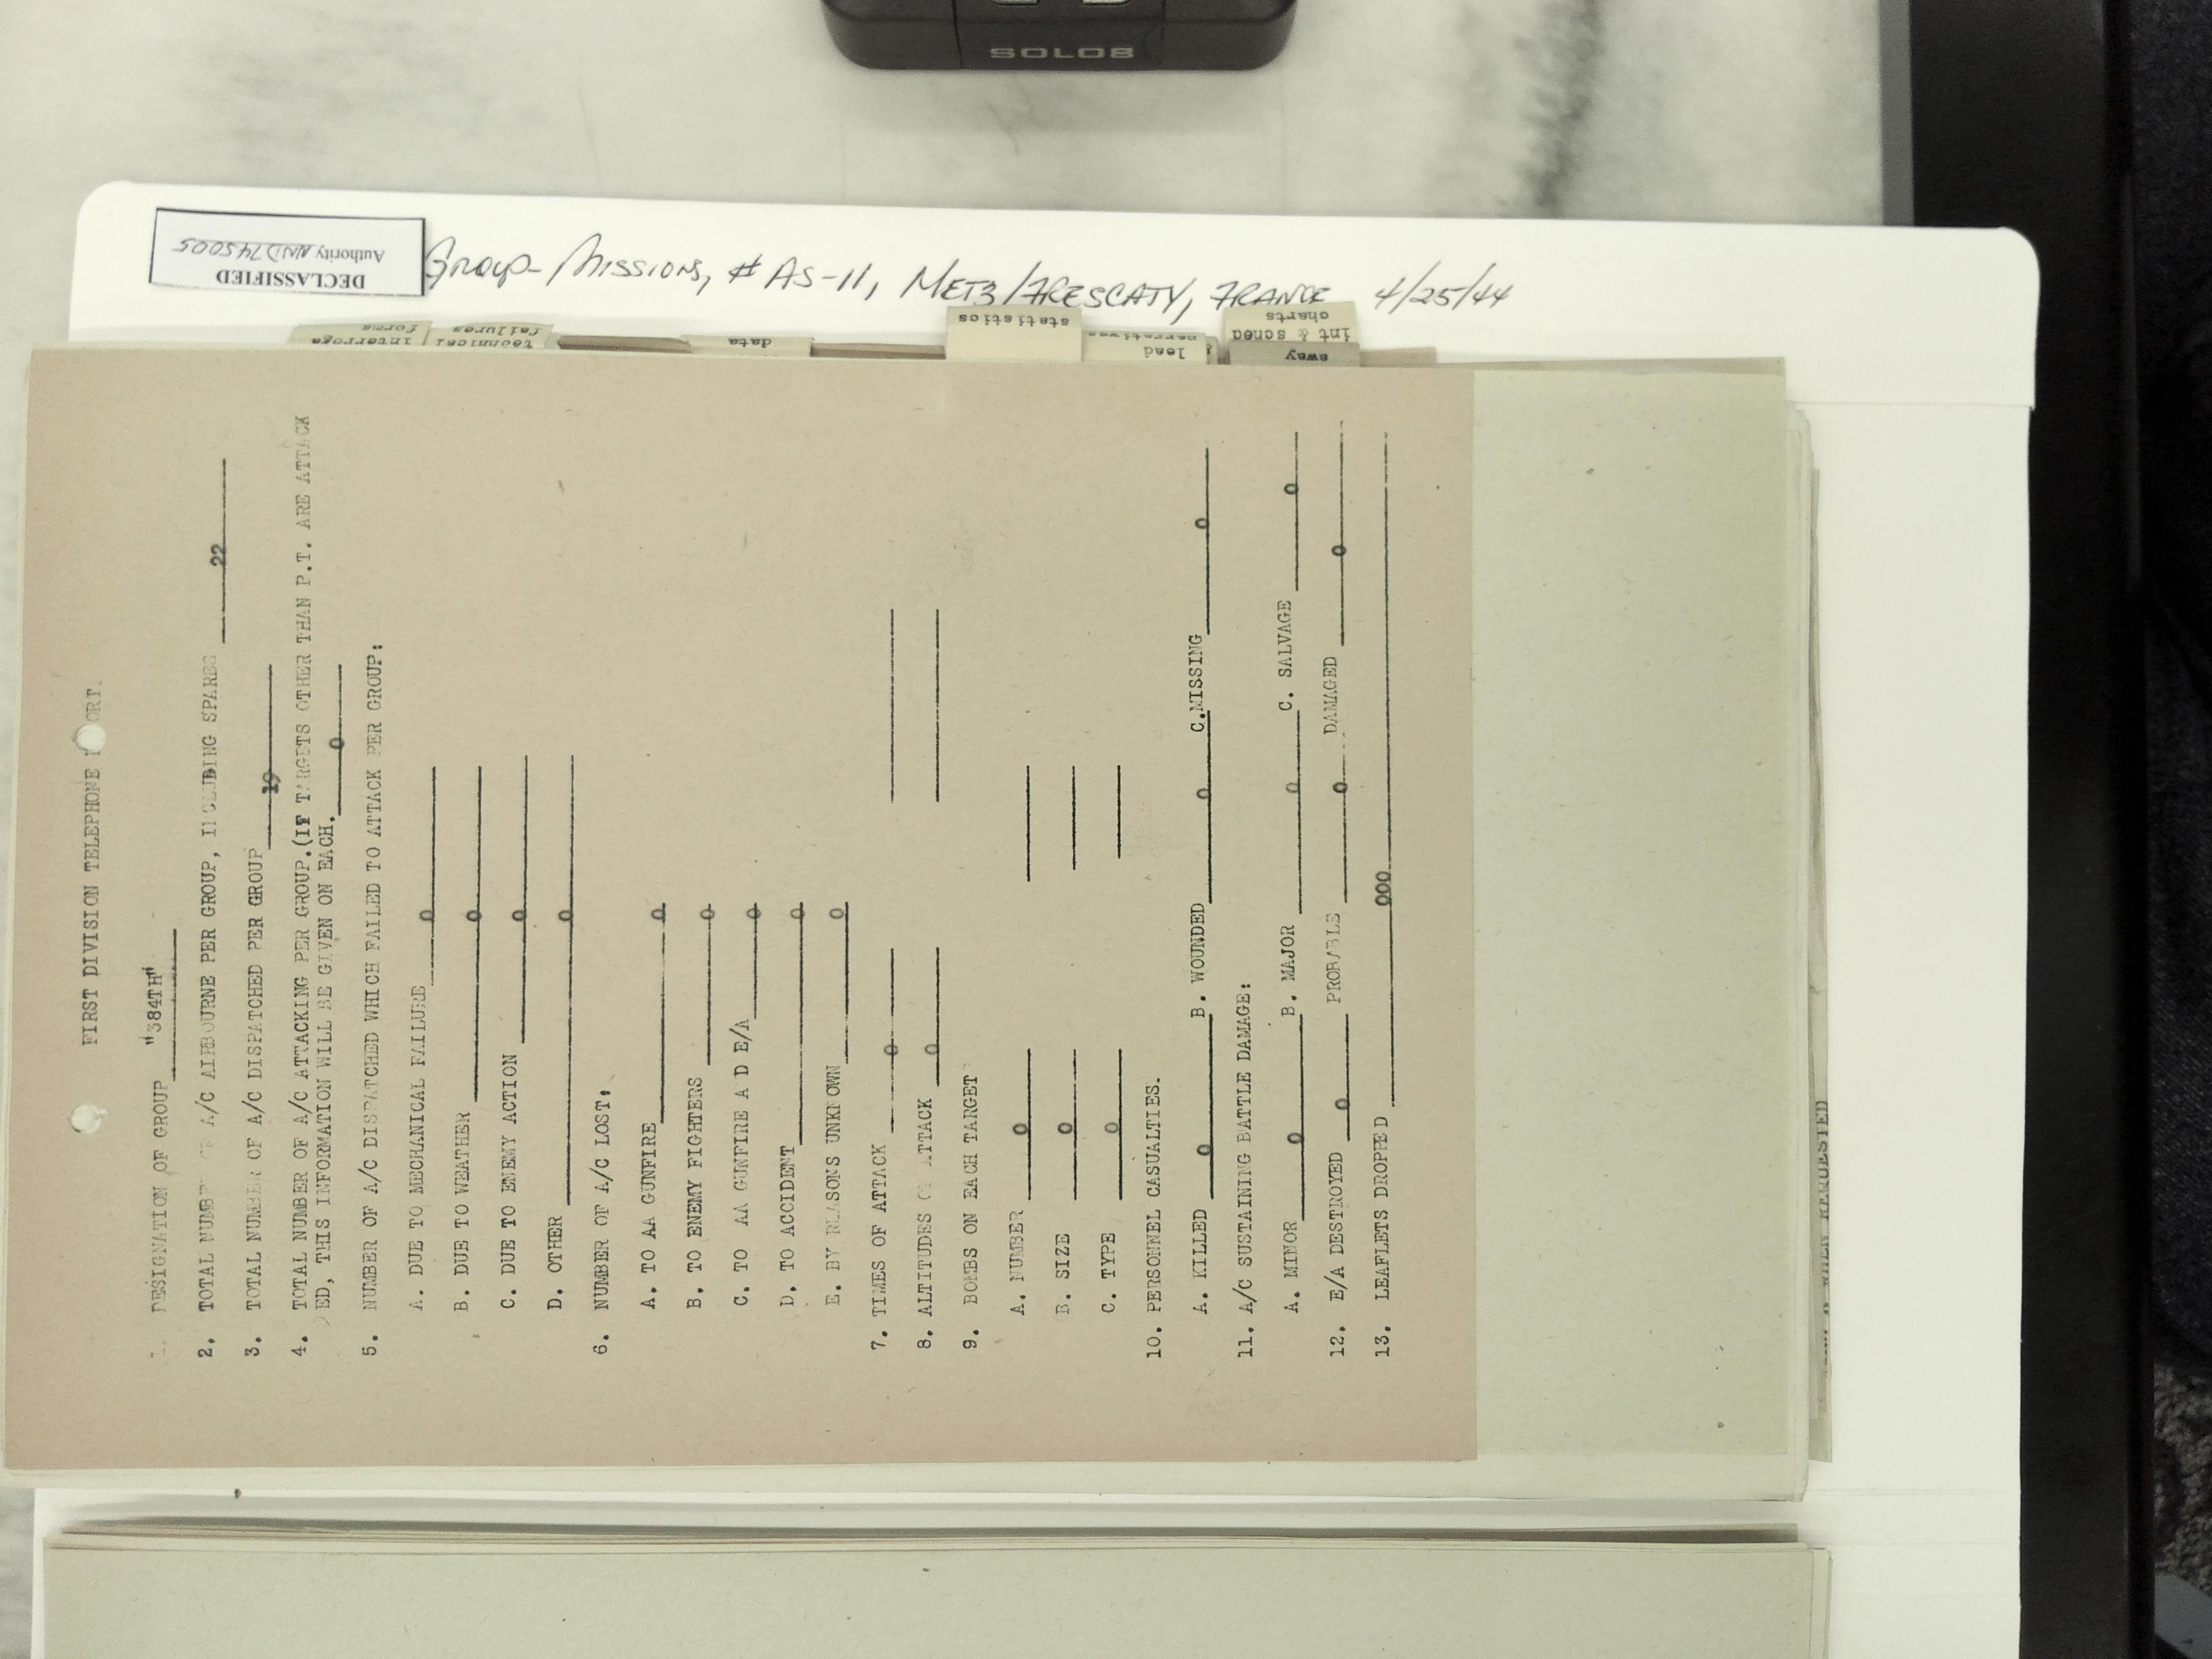 SOLO8
DECLASSIFIED
Authority NND745005
Group-Missions, # AS-11, Metz/Frescaty, France 4/25/44
interroga
forms
technical
failures
data
statistics
lead
narratives
int & sched
charts
away
FIRST DIVISION TELEPHONE ORT.
1. DESIGNATION OF GROUP "384TH"
2. TOTAL NUMBER OF A/C AIRBOURNE PER GROUP, INCLUDING SPARES 22
3. TOTAL NUMBER OF A/C DISPATCHED PER GROUP 19
4. TOTAL NUMBER OF A/C ATTACKING PER GROUP.(IF TARGETS OTHER THAN P.T. ARE ATTACK
ED, THIS INFORMATION WILL BE GIVEN ON EACH. 0
5. NUMBER OF A/C DISPATCHED WHICH FAILED TO ATTACK PER GROUP:
A. DUE TO MECHANICAL FAILURE 0
B. DUE TO WEATHER 0
C. DUE TO ENEMY ACTION 0
D. OTHER 0
6. NUMBER OF A/C LOST:
A. TO AA GUNFIRE 0
B. TO ENEMY FIGHTERS 0
C. TO AA GUNFIRE A D E/A 0
D. TO ACCIDENT 0
E. BY REASONS UNKNOWN 0
7. TIMES OF ATTACK 0
8. ALTITUDES OF ATTACK 0
9. BOMBS ON EACH TARGET
A. NUMBER 0
B. SIZE 0
C. TYPE 0
10. PERSONNEL CASUALTIES.
A. KILLED 0 B. WOUNDED 0 C.MISSING 0
11. A/C SUSTAINING BATTLE DAMAGE:
A. MINOR 0 B. MAJOR 0 C. SALVAGE 0
12. E/A DESTROYED 0 PROBABLE 0 DAMAGED 0
13. LEAFLETS DROPPED 000
WHEN REQUESTED